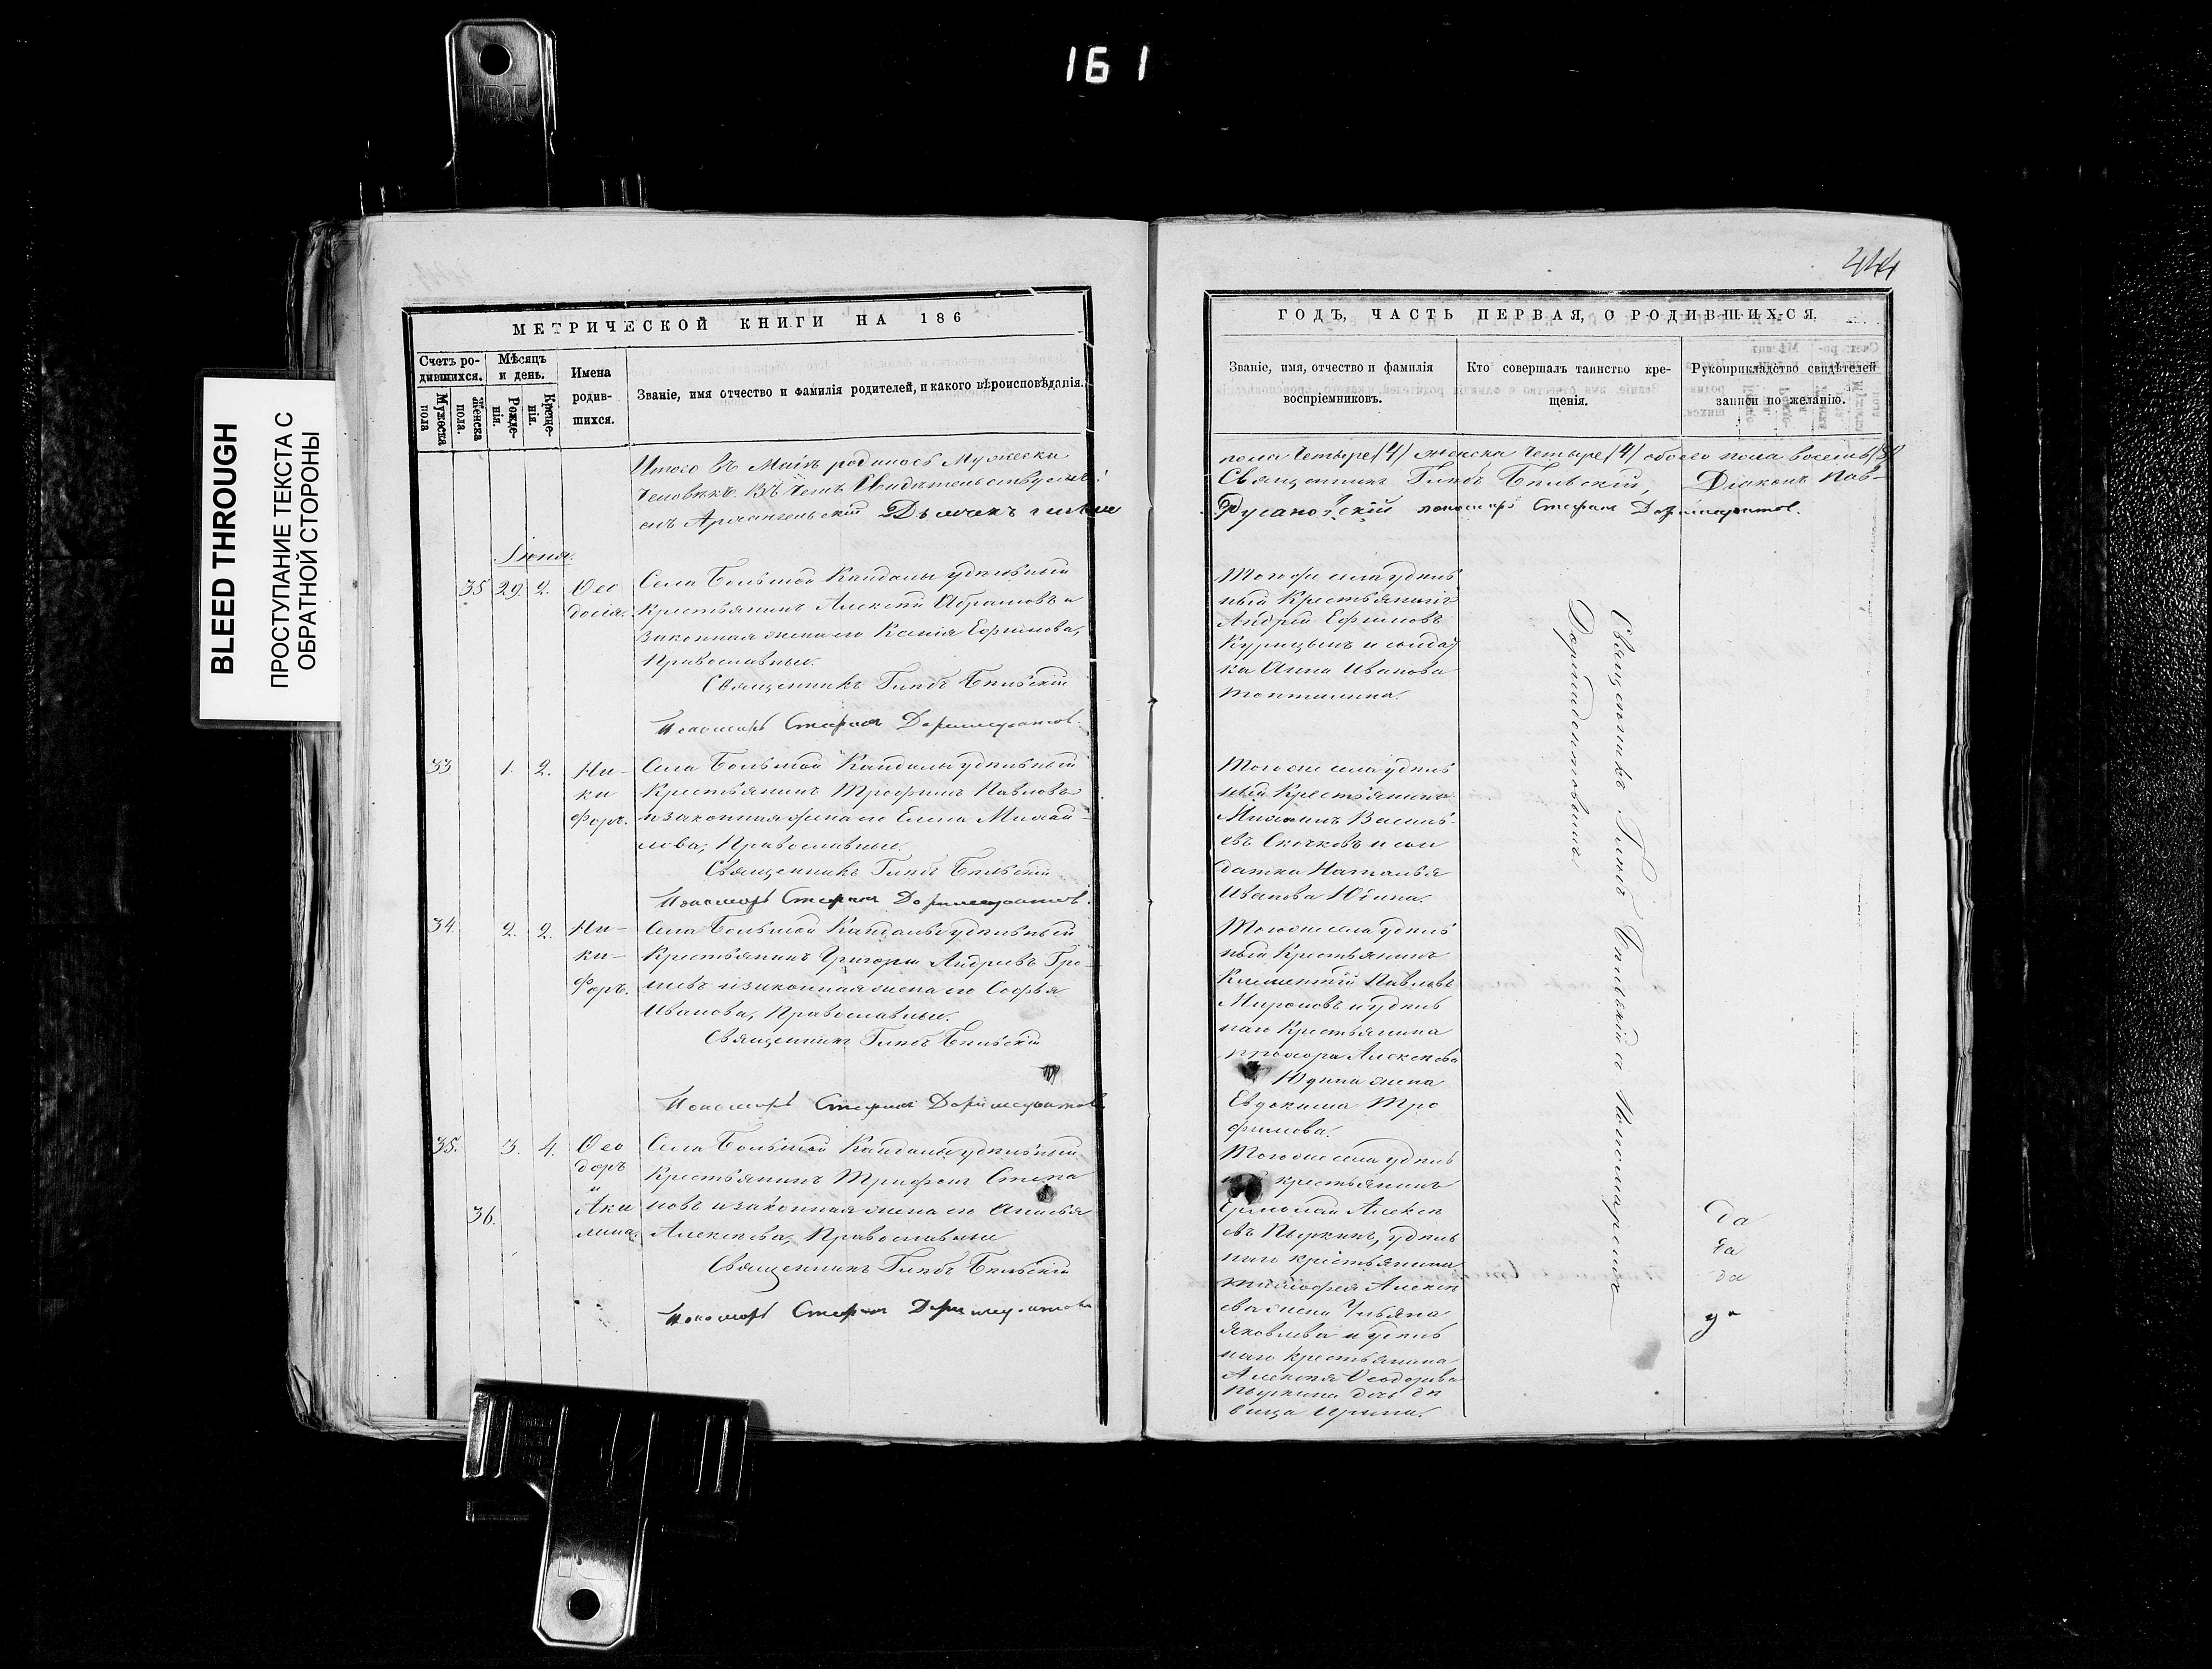 161
BLEED THROUGH
ПРОСТУПАНИЕ ТЕКСТА С
ОБРАТНОЙ СТОРОНЫ
МЕТРИЧЕСКОЙ КНИГИ НА 186
Счетъ ро-
дившихся.
Мужеска
пола
Женска
пола.
Мѣсяцъ
и день.
Рожде-
нія.
Креще-
нія.
Имена
родив-
шихся.
Званіе, имя отчество и фамилія родителей, и какого вѣроисповѣданія.
Итого въ Маіѣ родилось Мужеска
человѣкъ. Въ чемъ Свидѣтельствуемъ:
елъ Архангельскій
Іюня.
35 29. 2. Ѳео Села Большой Кандалы удѣльный
досія. Крестьянинъ Алексѣй Абрамовъ и
законная жена его Ксенія Ефимова,
Православные.
Священникъ Глѣбъ Бѣльскій
Пономарь Стефанъ Доримедонтовъ.
33 1. 2. Ни- Села Большой Кандалы удѣльный
ки Крестьянинъ Трофимъ Павловъ
форъ. и законная жена его Елена Михай-
лова, Православные.
Священникъ Глѣбъ Бѣльскій
Пономарь Стефанъ Доримедонтовъ.
34. 2. 2. Ни- Села Большой Кандалы удѣльный
ки- Крестьянинъ Григорій Андреевъ Гро-
форъ. мовъ и законная жена его Софья
Иванова, Православные.
Священникъ Глѣбъ Бѣльскій
Пономарь Стефанъ Доримедонтовъ
35. 3. 4. Ѳео Села Большой Кандалы удѣльный
доръ Крестьянинъ Трифонъ Степа
и
36. Аки новъ и законная жена его Анисья
лина. Алексѣева, Православные
Священникъ Глѣбъ Бѣльскій
Пономарь Стефанъ Доримедонтовъ
444
ГОДЪ, ЧАСТЬ ПЕРВАЯ, О РОДИВШИХСЯ.
Званіе, имя, отчество и фамилія
воспріемниковъ.
Кто совершалъ таинство кре-
щенія.
Рукоприкладство свидѣтелей
записи по желанію.
пола четыре (4) женска четыре (4) обоего пола восемь (8)
Священникъ Глѣбъ Бѣльскій, Діаконъ Пав-
пономарь Стефанъ Доримедонтовъ.
Тогоже села удѣль
ный Крестьянинъ
Андрей Ефимовъ
Курицынъ и солдат
ка Анна Иванова
Тогоже села удѣль
ный Крестьянинъ
Михаилъ Василь-
евъ Скочковъ и сол
датка Наталья
Иванова Юдина.
Тогоже села удѣль
ный Крестьянинъ
Климентій Павловъ
Мироновъ и удѣль
наго Крестьянина
Прохора Алексѣева
Юдина жена
Евдокима Тро
фимова.
Тогоже села удѣль
крестьянинъ
Ермолай Алексѣ
евъ Пыркинъ, удѣль
наго крестьянина
Тимофея Алексѣ
ева жена Ульяна
Яковлева и удѣль
наго крестьянина
Алексѣя Ѳеодорова
Пыркина дочь дѣ
вица Ирина.
Священникъ Глѣбъ Бѣльскій съ Пономаремъ
Доримедонтовымъ